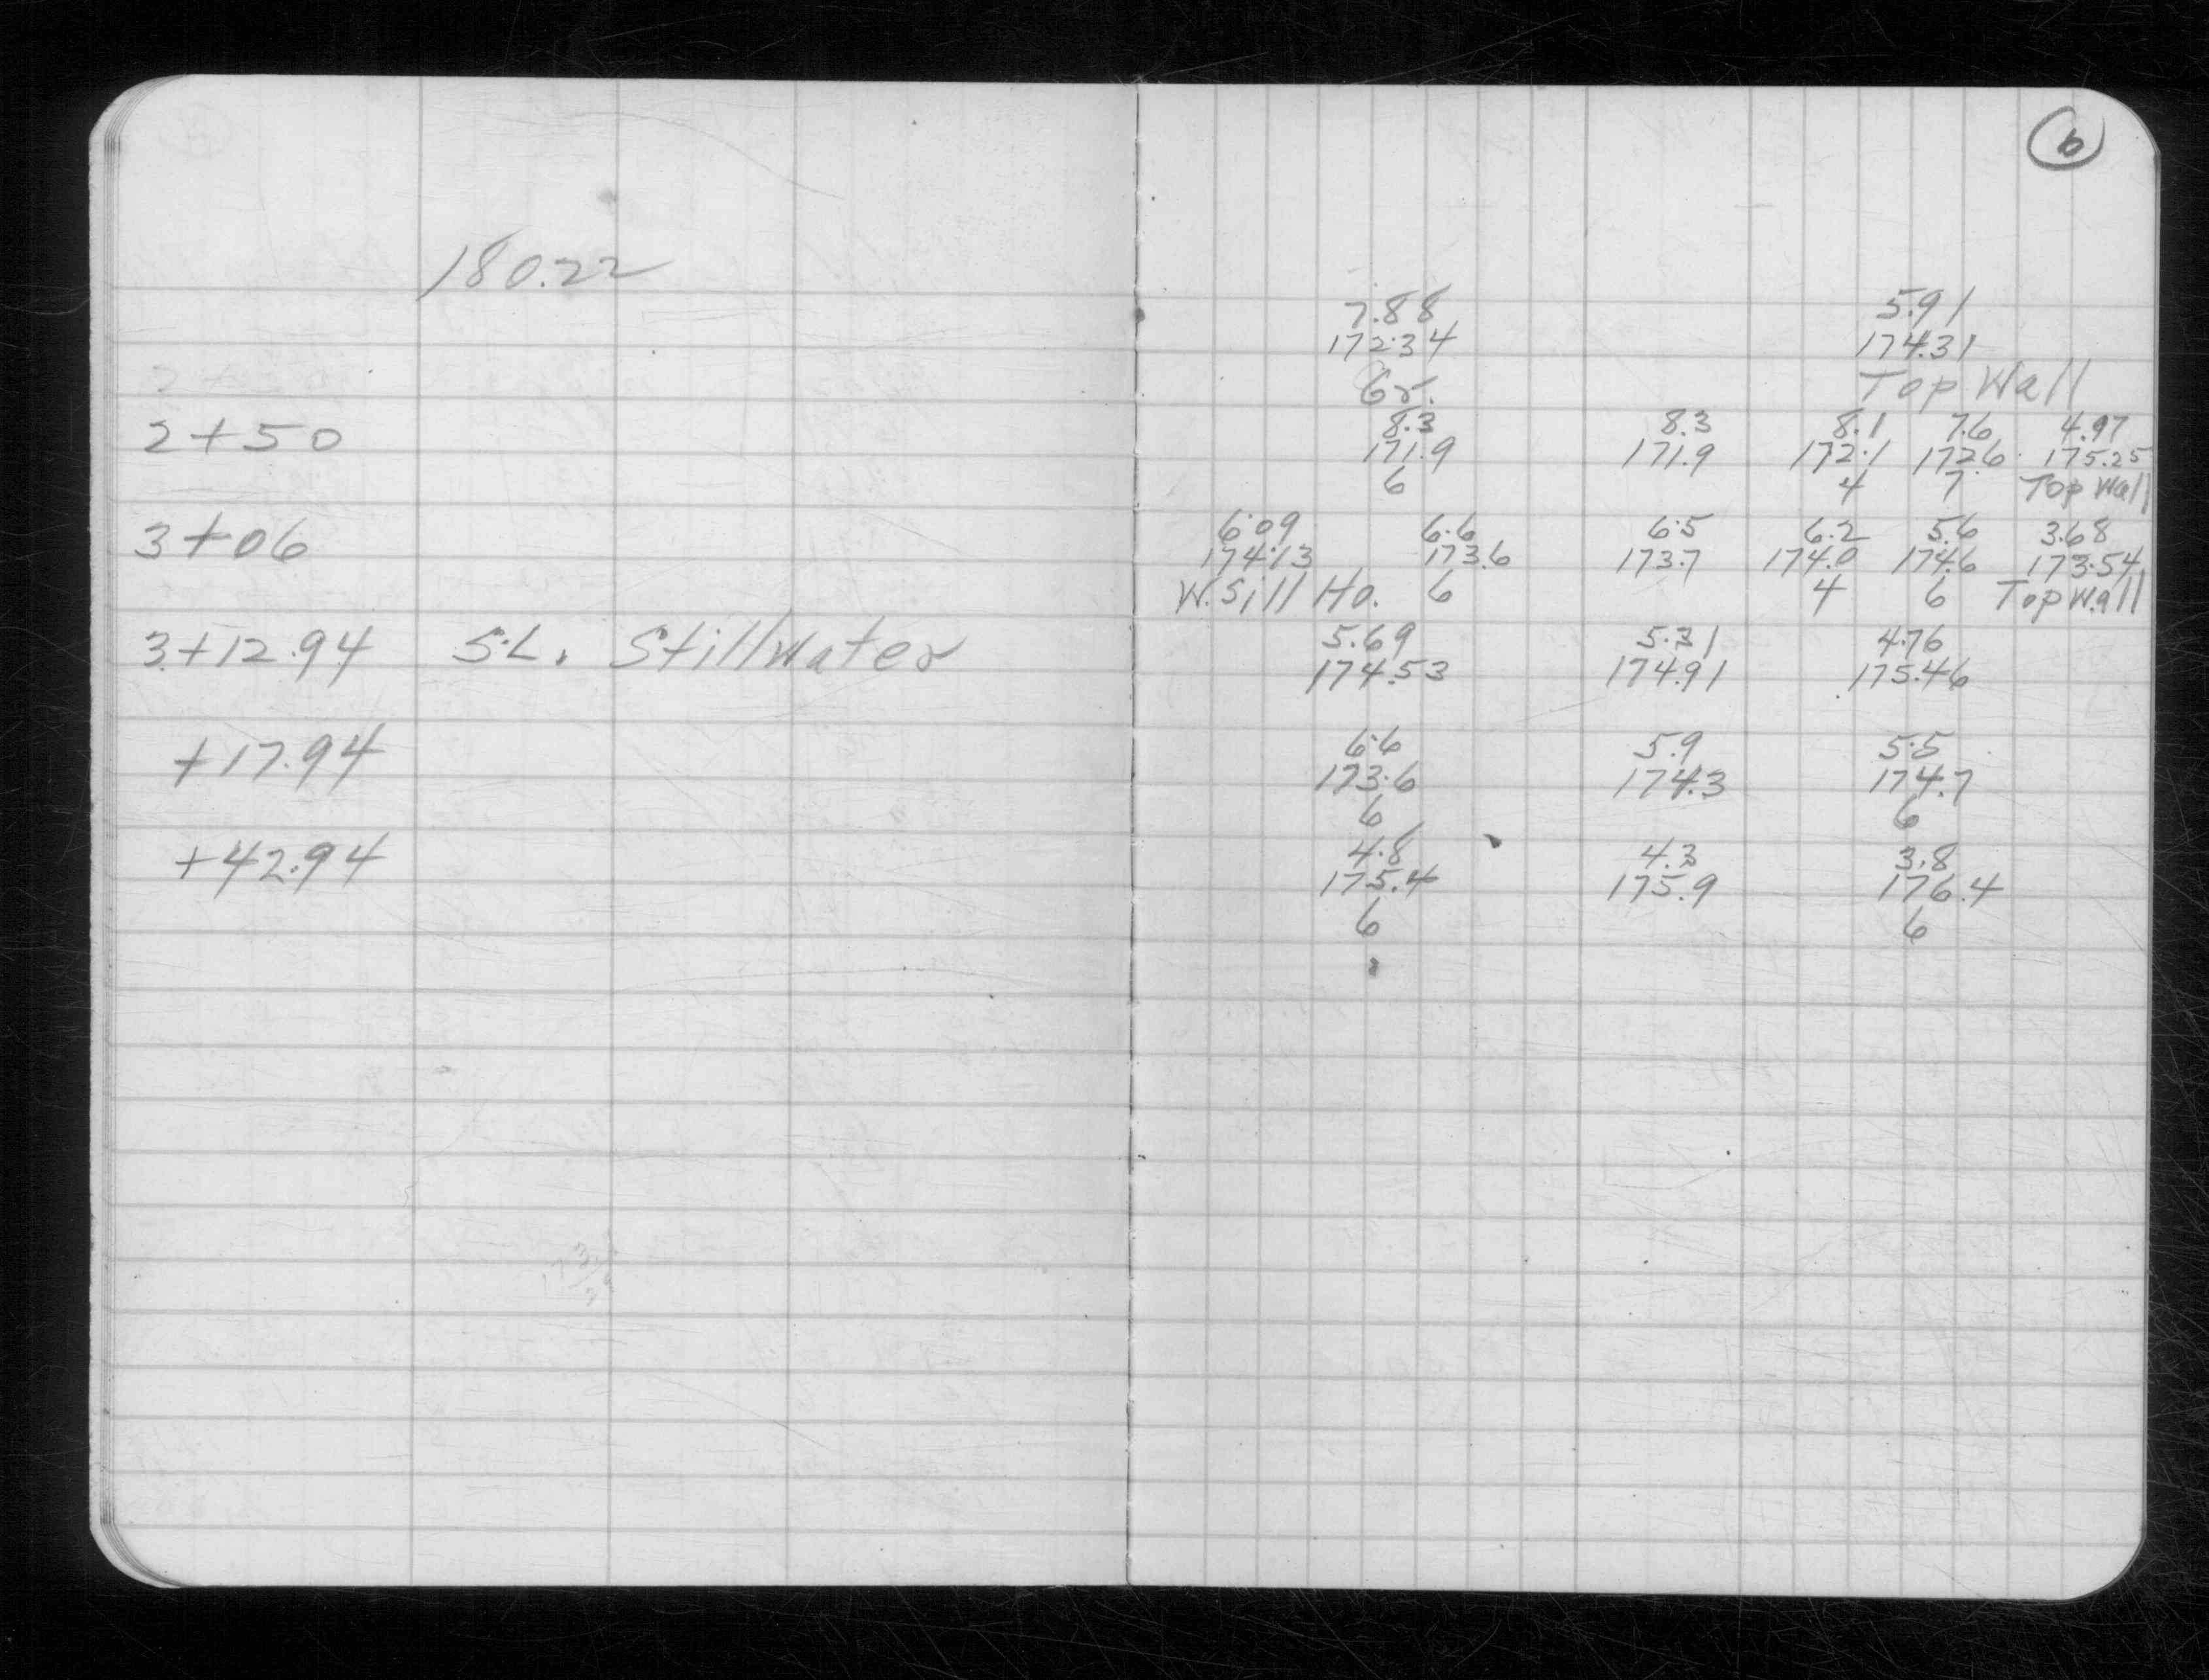 6
180.22
7.88 5.91
172.34 174.31
Gr. Top Wall
2+50 8.3 8.3 8.1 7.6 4.97
171.9 171.9 172.1 172.6 175.25
6 4 7 Top Wall
3+06 6.09 6.6 6.5 6.2 5.6 3.68
174.13 173.6 173.7 174.0 174.6 173.54
W. Sill Ho. 6 4 6 Top Wall
3+12.94 S.L. Stillwater 5.69 5.31 4.76
174.53 174.91 175.46
+17.94 6.6 5.9 5.5
173.6 174.3 174.7
6 6
+42.94 4.8 4.3 3.8
175.4 175.9 176.4
6 6